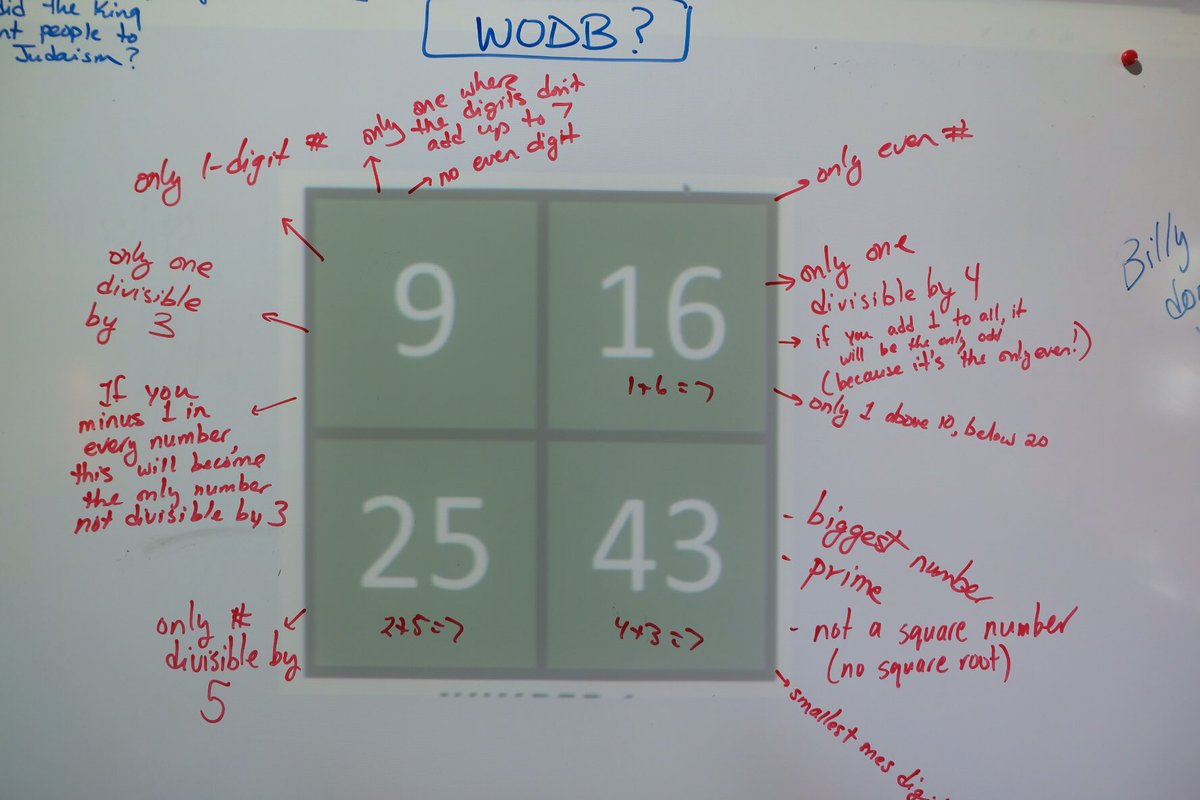 did the King
nt people to
Judaism?
WODB?
only 1-digit #
only one where
the digits don't
add up to 7
no even digit
only even #
only one
divisible
by 3
9
16
1+6=7
only one
divisible by 4
if you add 1 to all, it
will be the only odd
(because it's the only even!)
only 1 above 10, below 20
If you
minus 1 in
every number,
this will become
the only number
not divisible by 3
Billy
25
43
2+5=7
4+3=7
- biggest number
- prime
- not a square number
(no square root)
only #
divisible by
5
smallest